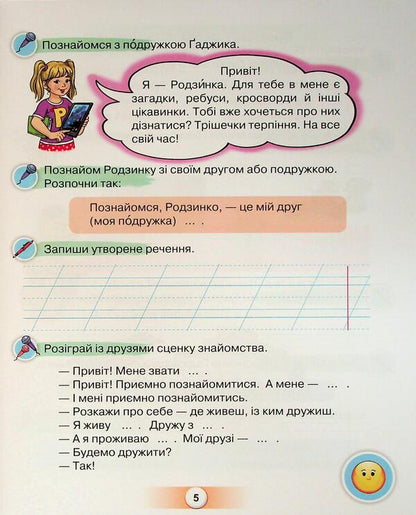 Познайомся з по́дружкою Ґаджика.
Привіт!
Я — Родзи́нка. Для тебе в мене є
загадки, ребуси, кросворди й інші
цікавинки. Тобі вже хочеться про них
дізнатися? Трішечки терпіння. На все
свій час!
Р
Познайом Родзинку зі своїм другом або подружкою.
Розпочни так:
Познайомся, Родзинко, — це мій друг
(моя по́дружка) ... .
Запиши утворене речення.
Розіграй із друзями сценку знайомства.
— Привіт! Мене звати ... .
— Привіт! Приємно познайомитися. А мене — ... .
— І мені приємно познайомитись.
— Розкажи про себе — де живеш, із ким дружиш.
— Я живу ... . Дружу з ... .
— А я проживаю ... . Мої друзі — ... .
— Будемо дружити?
— Так!
5